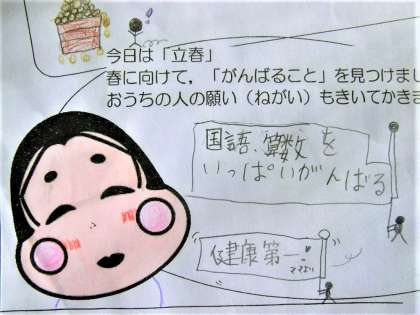 今日は「立春」
春に向けて，「がんばること」を見つけまし
おうちの人の願い（ねがい）もきいてかきま
国語、算数を
いっぱいがんばる
健康第一!
ママより